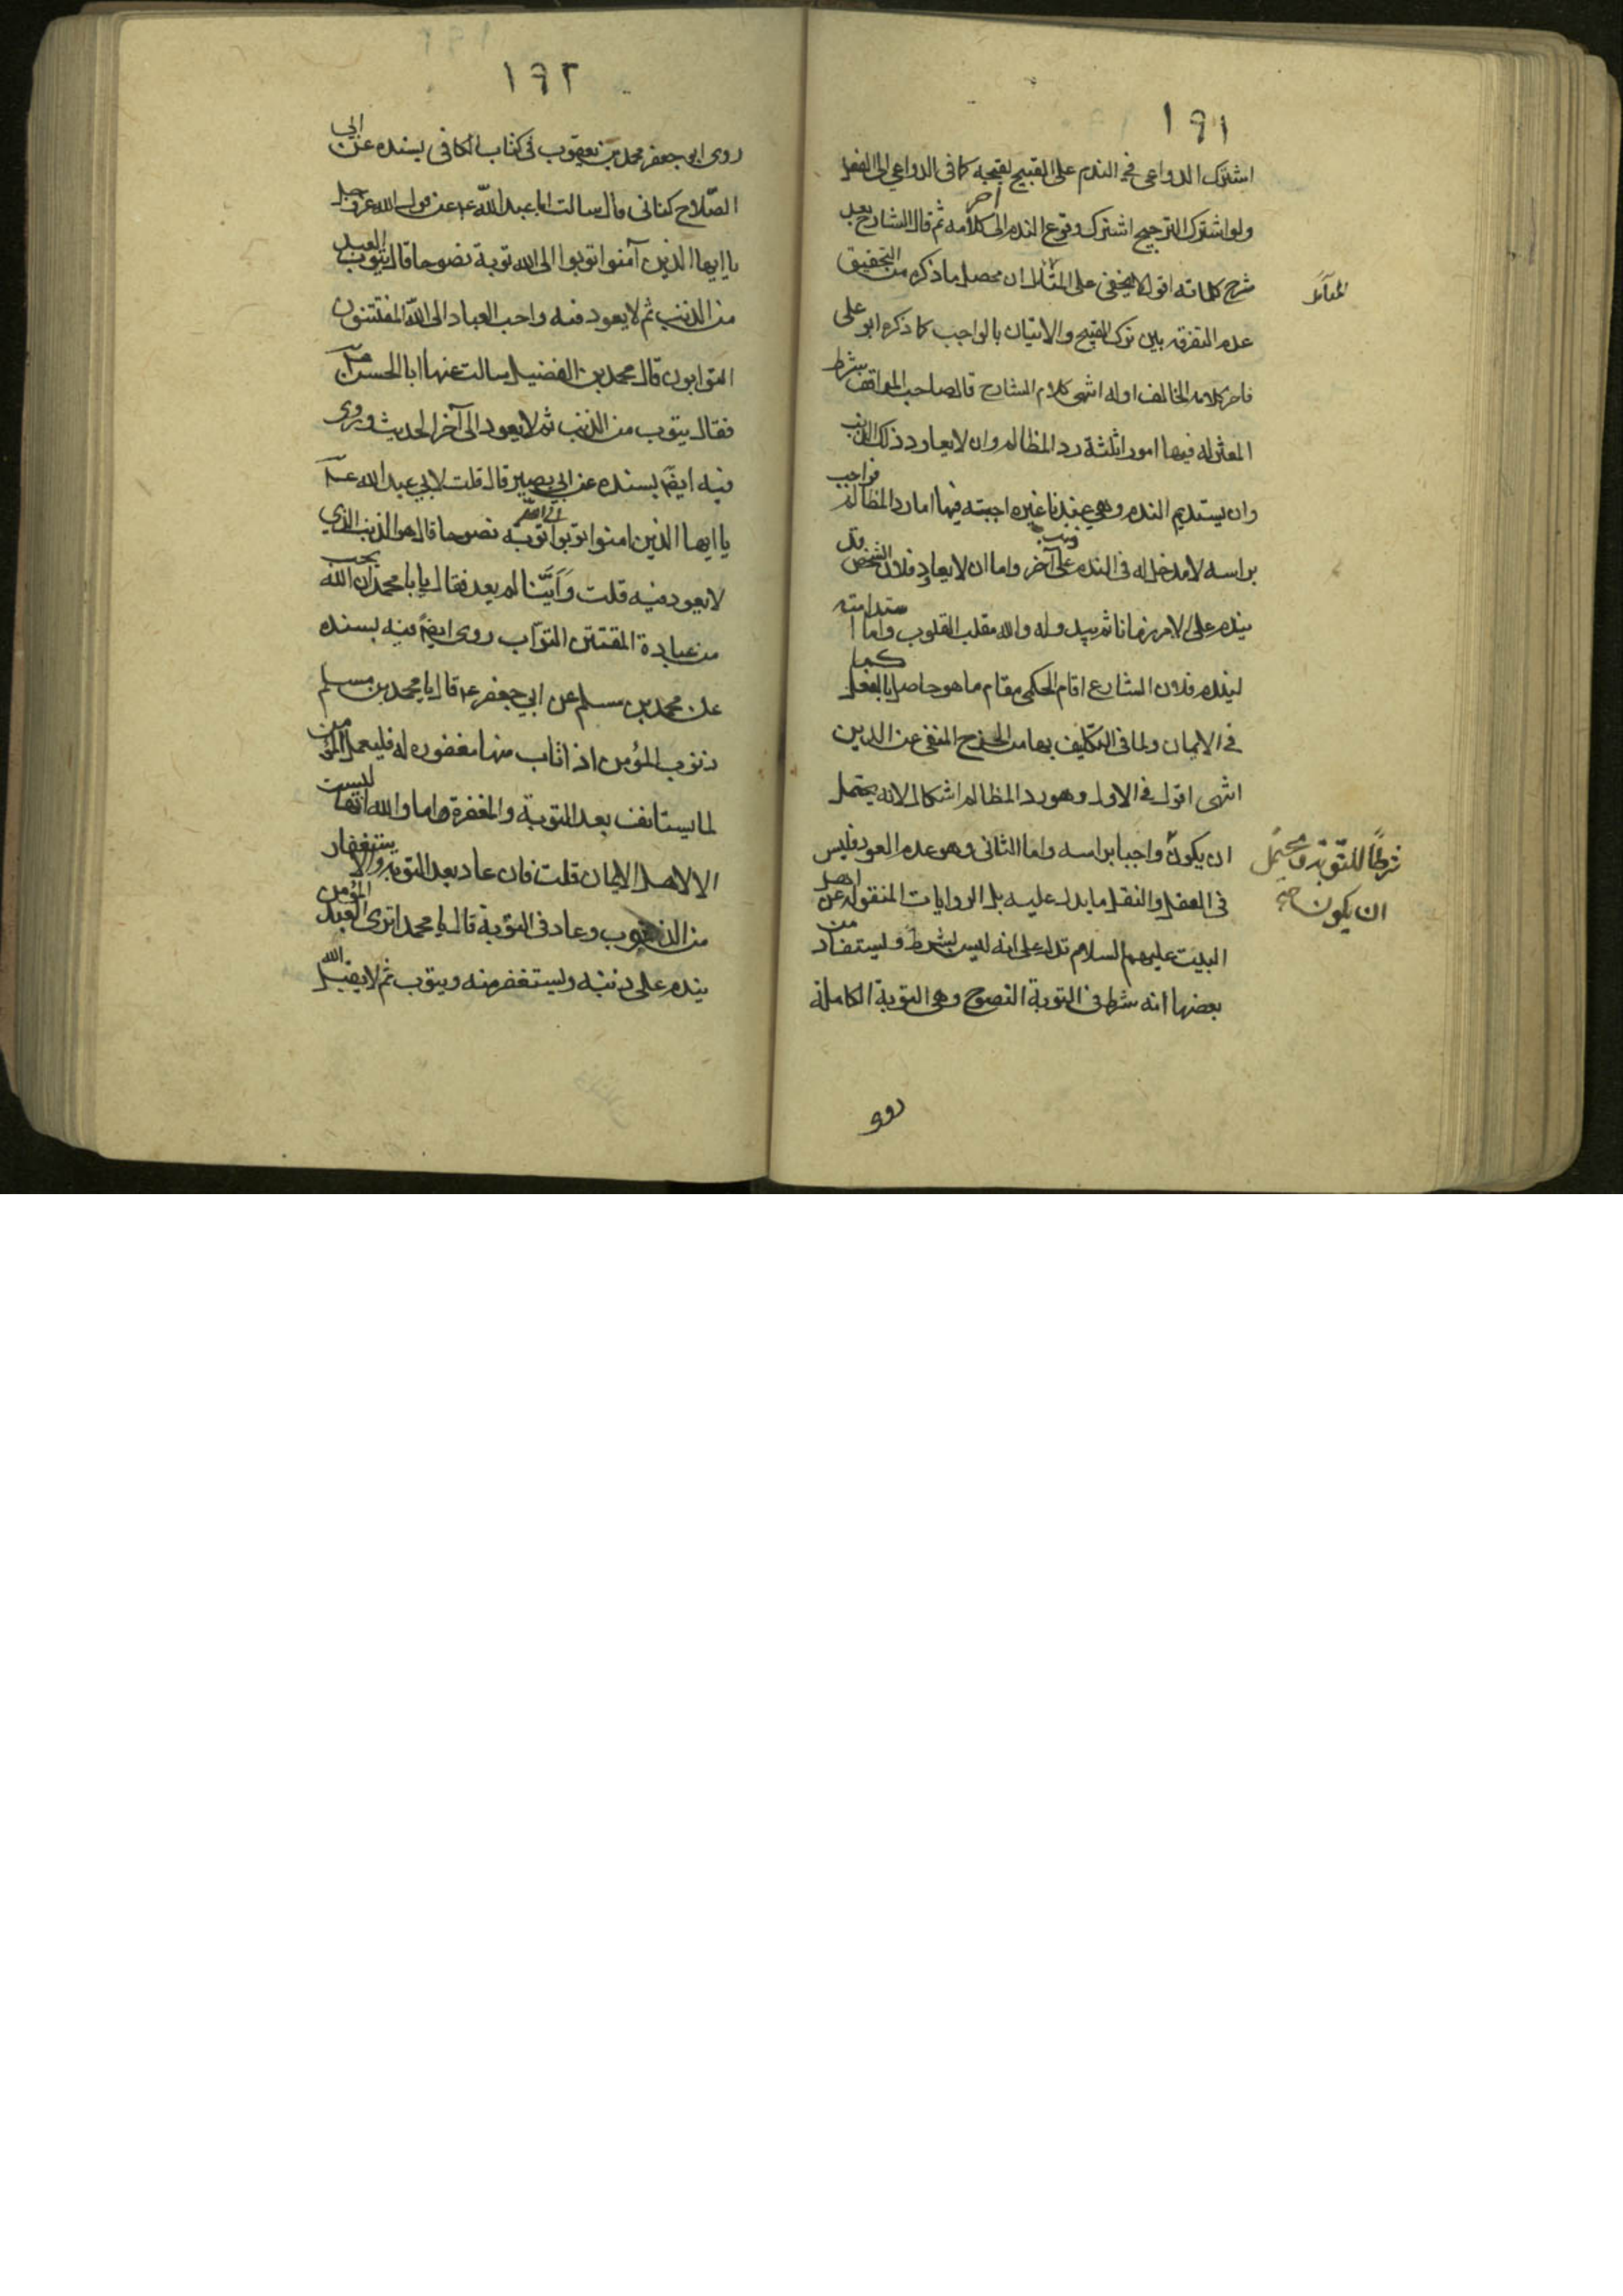 ١٩١
اشترك الدواعى فى الندم على القبيح لقبحه كما فى الدواعي الى الفعل
ولو اشترك الترجيح اشترك وقوع الندم الى آخر كلامه ثم قال الشارح بعد
شرح كلماته اقول لا يخفى على ان محصل ما ذكره من التحقيق
المتأمل
عدم التفرقه بين ترك القبيح والاتيان بالواجب كما ذكره ابو على
فاخر كلامه يخالف اوله انتهى كلام الشارح قال صاحب المواقف شرط
المعتزله فيها امورا ثلثة رد المظالم وان لا يعاود ذلك الذنب
وان يستديم الندم وهي عندنا غير واجبته فيها اما رد المظالم فواجب
براسه لا مدخل له فى الندم على ذنب آخر واما ان لا يعاود فلان الشخص قد
يندم على الامر زمانا ثم يبدو له والله مقلب القلوب واما استدامته
ليندم فلان الشارع اقام الحكمى مقام ما هو حاصل بالفعل كما
فى الايمان ولما فى التكليف بها من الحرج المنفى عن الدين
انتهى اقول فى الاول وهو رد المظالم اشكال لانه يحتمل
ان يكون واجبا براسه واما الثانى وهو عدم العود فليس
شرطاً للتوبة و يحتمل
ان يكون صح
فى العقل والنقل ما يدل عليه بل الروايات المنقوله عن اهل
البيت عليهم السلام تدل على انه ليس بشرط ويستفاد من
بعضها انه شرط فى التوبة النصوح وهى التوبة الكاملة
روى
١٩٢
روى ابو جعفر محمد بن يعقوب فى كتاب الكافى بسنده عن ابى
الصّلاح كنانى قال سالت ابا عبد الله ع عن قول الله عز وجل
يا ايها الذين آمنوا توبوا الى الله توبة نصوحا قال يتوب العبد
من الذنب ثم لا يعود فيه واحب العباد الى الله المفتتنون
التوابون قال محمد بن الفضيل سالت عنها ابا الحسن ع
فقال يتوب من الذنب ثم لا يعود الى آخر الحديث وروى
فيه ايضً بسنده عن ابي بصير قال قلت لابي عبد الله ع
يا ايها الذين امنوا توبوا الى الله توبة نصوحا قال هو الذنب الذي
لا يعود فيه قلت وَاَيُّنا لم يعد فقال يا با محمد ان الله يحب
من عباده المفتتن التوّاب روى ايضً فيه بسنده
عن محمد بن مسلم عن ابي جعفر ع قال يا محمد بن مسلم
ذنوب المؤمن اذا تاب منها مغفوره له فليعمل المؤمن
لما يستانف بعد التوبة والمغفرة اما والله انها ليست
الا لاهل الايمان قلت فان عاد بعد التوبه والاستغفار
من الذنوب وعاد فى التوبة قال يا محمد اترى العبد المؤمن
يندم على ذنبه ويستغفر منه ويتوب ثم لا يقبل الله